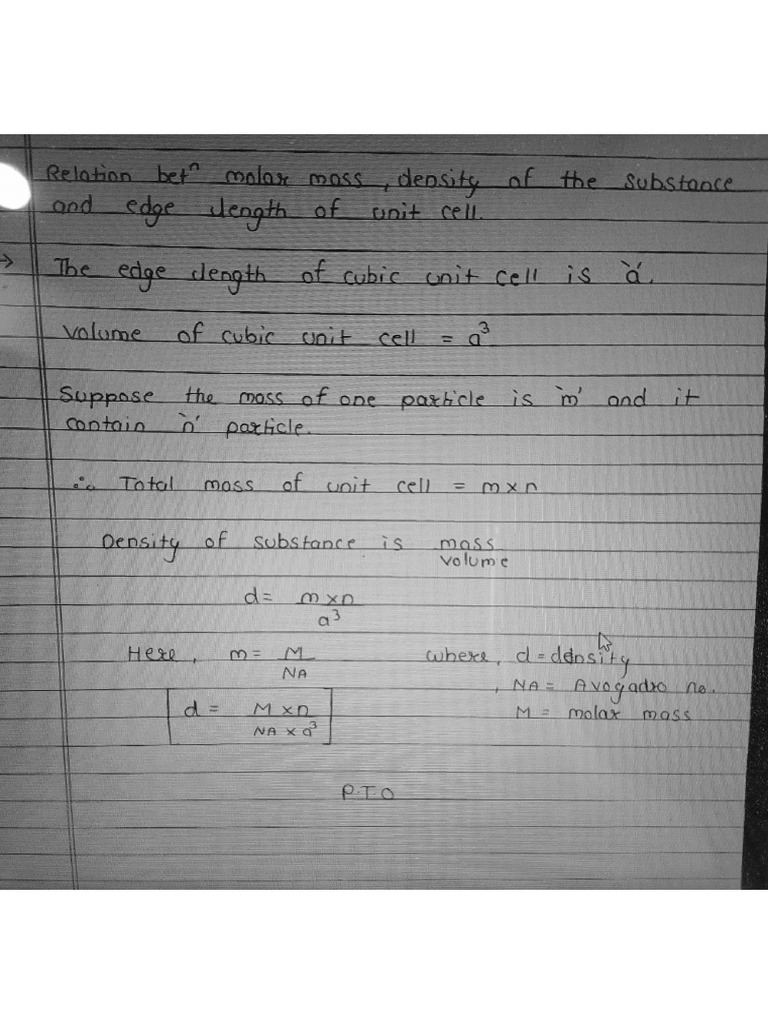 Relation betⁿ molar mass, density of the substance
and edge length of unit cell.
→ The edge length of cubic unit cell is 'a'.
Volume of cubic unit cell = a³
Suppose the mass of one particle is 'm' and it
contain 'n' particle.
∴ Total mass of unit cell = m×n
Density of substance is mass
volume
d= m×n
a³
Here, m= M where, d=density
NA , NA = Avogadro no.
d = M×n M = molar mass
NA × a³
P.T.O